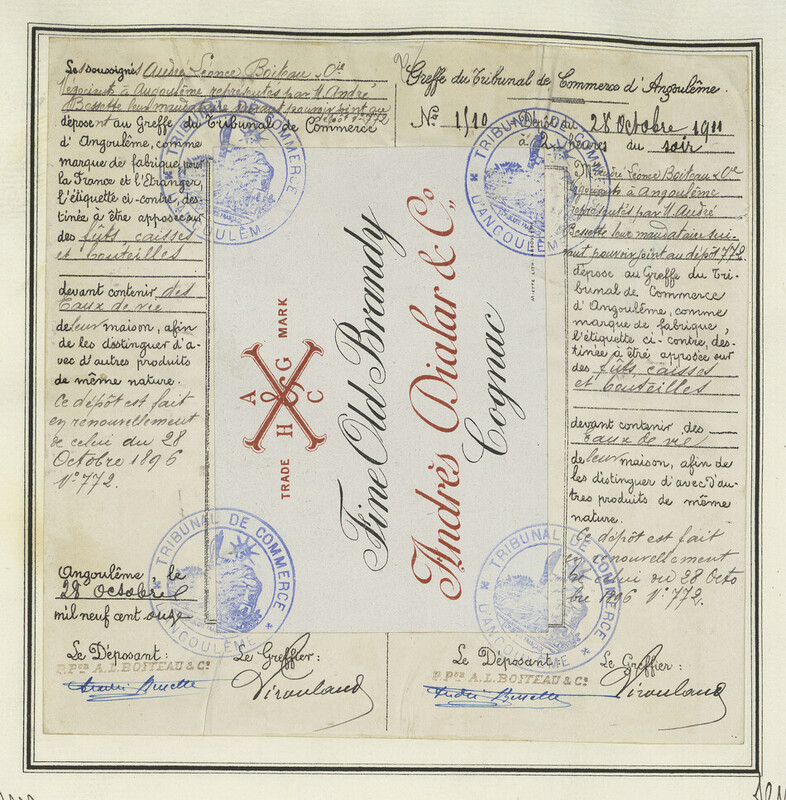 Les soussignés André Léonce Boiteau & Cie
Négociants à Angoulême représentés par M. André
Bessette leur mandataire suivant pouvoir joint au
dépôt No 772
déposent au Greffe du Tribunal de Commerce
d'Angoulême, comme
marque de fabrique, pour
la France et l'Etranger,
l'étiquette ci-contre, des-
tinée à être apposée sur
des fûts, caisses
et bouteilles
devant contenir des
Eaux de vie
de leur maison, afin
de les distinguer d'a-
vec d'autres produits
de même nature.
Ce dépôt est fait
en renouvellement
de celui du 28
Octobre 1896
No 772.
Angoulême le
28 Octobre
mil neuf cent onze
Le Déposant:
Le Greffier:
P. Pon A. L. BOITEAU & Co
André Bessette
Virouland
Greffe du Tribunal de Commerce d'Angoulême.
No 1/10 Déposé au 28 Octobre 1911
à 2 heures du soir
André Léonce Boiteau & Cie
négociants à Angoulême
représentés par M. André
Bessette leur mandataire sui-
vant pouvoir joint au dépôt 772.
dépose au Greffe du Tri-
bunal de Commerce
d'Angoulême, comme
marque de fabrique,
l'étiquette ci-contre, des-
tinée à être apposée sur
des fûts, caisses
et bouteilles
devant contenir des
Eaux de vie
de leur maison, afin de
les distinguer d'avec d'au-
tres produits de même
nature.
Ce dépôt est fait
en renouvellement
de celui du 28 Octo
bre 1896 No 772.
Le Déposant:
Le Greffier:
P. Pon A. L. BOITEAU & Co
André Bessette
Virouland
TRADE MARK
A & G
H C
Fine Old Brandy
Andrès Dialar & Co.,
Cognac
TRIBUNAL DE COMMERCE
D'ANGOULÊME
TRIBUNAL DE COMMERCE
D'ANGOULÊME
TRIBUNAL DE COMMERCE
D'ANGOULÊME
TRIBUNAL DE COMMERCE
D'ANGOULÊME